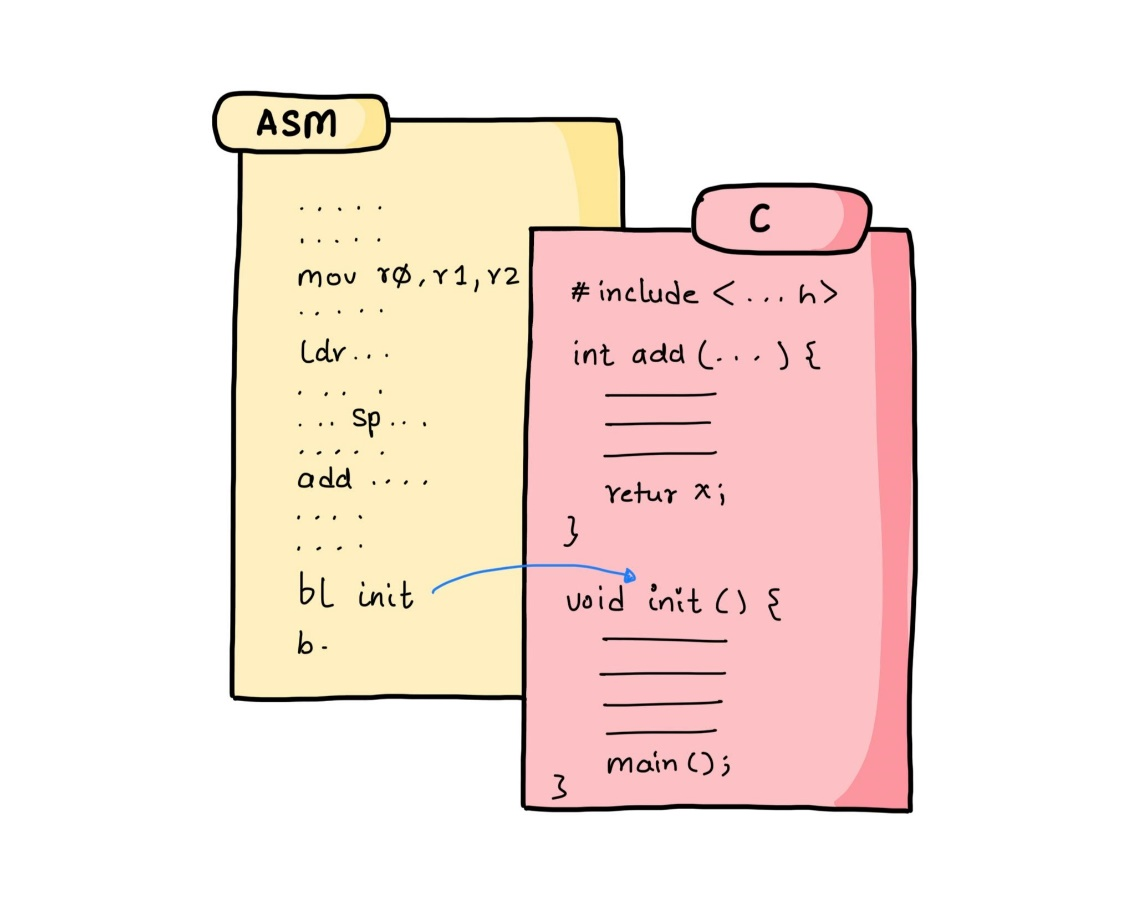 ASM
. . . . .
. . . . .
mov r0, r1, r2
. . . . .
ldr...
. . . .
... sp...
. . . . .
add ....
. . . .
. . . .
bl init
b.
C
#include <...h>
int add (...) {
retur x;
}
void init () {
main ();
}